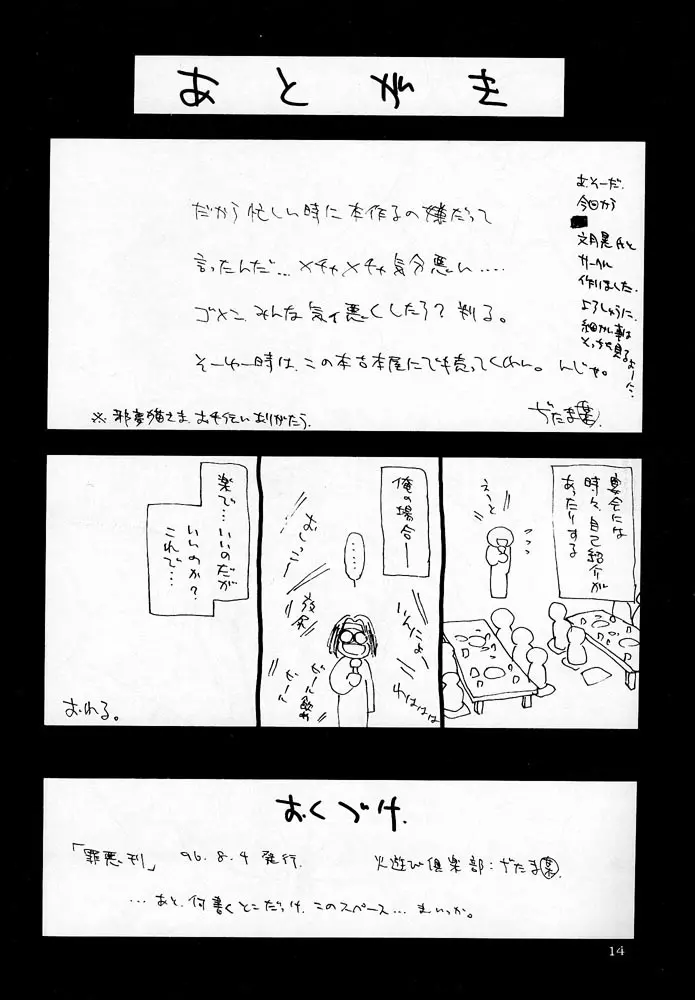 あとがき
だから忙しい時に本作るの嫌だって
言ったんだ…メチャメチャ気分悪い‥‥
ゴメン、みんな気ィ悪くしたろ？判る。
そーゆー時は、この本古本屋にでも売ってくれい。んじゃ。
お、そーだ。
今回から
文月晃氏と
サークル
作りました。
よろしゅうに。
細かい事は
そっちを見るよーに…
※邪夢猫さま、お手伝いありがとう。
ぢたま
宴会には
時々、自己紹介が
あったりする
えーと
俺の場合―
……
おしっこー
いんにょー
放尿
ビール飲め
ビール
わはははは
楽で…いいのだが
いいのか？
これで…
おわる。
おくづけ
「罪悪刊」 96.8.4 発行
火遊び倶楽部：ぢたま
…あと、何書くとこだっけ、このスペース…まいっか。
14